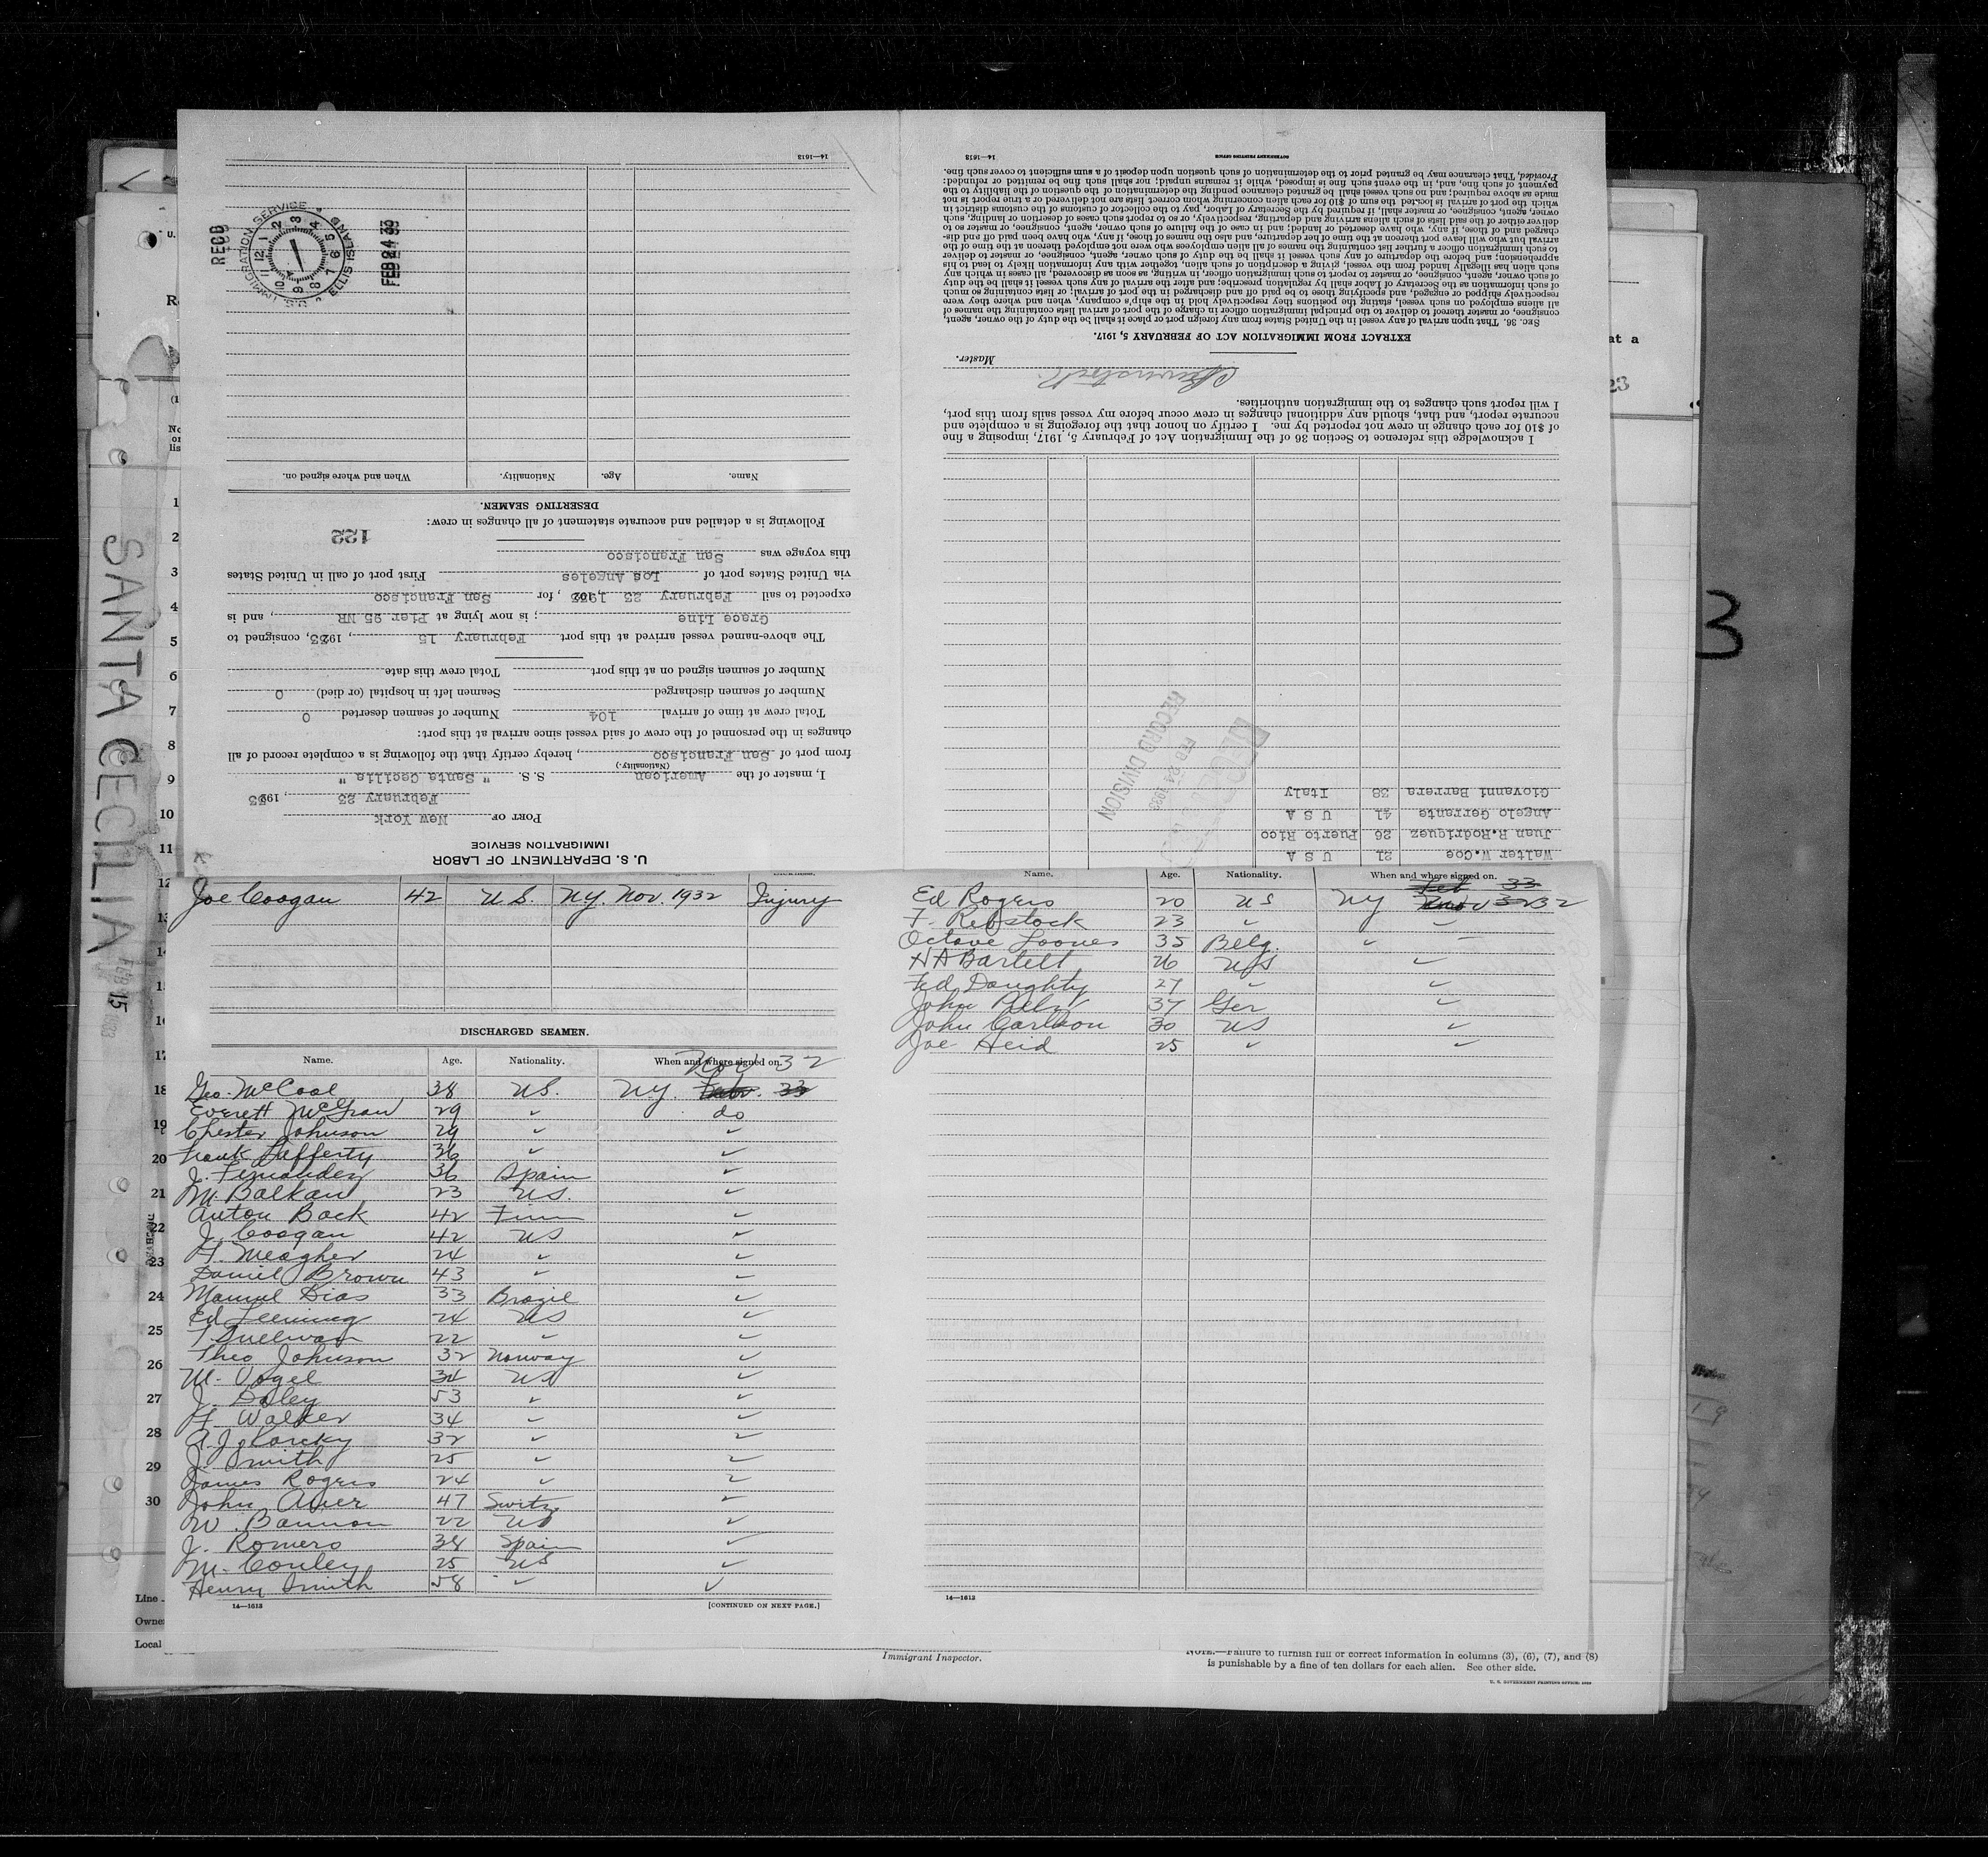 SANTA CECILIA
FEB 15
U. S. DEPARTMENT OF LABOR
IMMIGRATION SERVICE
PORT OF New York
February 23, 1933
I, master of the American S. S. " Santa Cecilia "
(Nationality.)
from port of San Francisco, hereby certify that the following is a complete record of all
changes in the personnel of the crew of said vessel since arrival at this port:
Total crew at time of arrival 104 Number of seamen deserted 0
Number of seamen discharged Seamen left in hospital (or died) 0
Number of seamen signed on at this port Total crew this date
The above-named vessel arrived at this port February 15, 1933, consigned to
Grace Line; is now lying at Pier 95 NR, and is
expected to sail February 23 1933, for San Francisco
via United States port of Los Angeles First port of call in United States
this voyage was San Francisco
Following is a detailed and accurate statement of all changes in crew:
122
DESERTING SEAMEN.
Name. Age. Nationality. When and where signed on.
14—1613
RECD
U.S. IMMIGRATION SERVICE ELLIS ISLAND
FEB 24 33
Walter W. Coe 21 U S A
Juan R. Rodriquez 26 Puerto Rico
Angelo Gerrante 41 U S A
Giovanni Barrera 38 Italy
FEB 24 1933
RECORD DIVISION
I acknowledge this reference to Section 36 of the Immigration Act of February 5, 1917, imposing a fine
of $10 for each change in crew not reported by me. I certify on honor that the foregoing is a complete and
accurate report, and that, should any additional changes in crew occur before my vessel sails from this port,
I will report such changes to the immigration authorities.
Master.
EXTRACT FROM IMMIGRATION ACT OF FEBRUARY 5, 1917.
SEC. 36. That upon arrival of any vessel in the United States from any foreign port or place it shall be the duty of the owner, agent,
consignee, or master thereof to deliver to the principal immigration officer in charge of the port of arrival lists containing the names of
all aliens employed on such vessel, stating the positions they respectively hold in the ship's company, when and where they were
respectively shipped or engaged, and specifying those to be paid off and discharged in the port of arrival; or lists containing so much
of such information as the Secretary of Labor shall by regulation prescribe; and after the arrival of any such vessel it shall be the duty
of such owner, agent, consignee, or master to report to such immigration officer, in writing, as soon as discovered, all cases in which any
such alien has illegally landed from the vessel, giving a description of such alien, together with any information likely to lead to his
apprehension; and before the departure of any such vessel it shall be the duty of such owner, agent, consignee, or master to deliver
to such immigration officer a further list containing the names of all alien employees who were not employed thereon at the time of the
arrival but who will leave port thereon at the time of her departure, and also the names of those, if any, who have been paid off and dis-
charged and of those, if any, who have deserted or landed; and in case of the failure of such owner, agent, consignee, or master so to
deliver either of the said lists of such aliens arriving and departing, respectively, or so to report such cases of desertion or landing, such
owner, agent, consignee, or master shall, if required by the Secretary of Labor, pay to the collector of customs of the customs district in
which the port of arrival is located the sum of $10 for each alien concerning whom correct lists are not delivered or a true report is not
made as above required; and no such vessel shall be granted clearance pending the determination of the question of the liability to the
payment of such fine, and, in the event such fine is imposed, while it remains unpaid; nor shall such fine be remitted or refunded:
Provided, That clearance may be granted prior to the determination of such question upon deposit of a sum sufficient to cover such fine.
14—1613 GOVERNMENT PRINTING OFFICE
Joe Coogan 42 U S. NY. Nov. 1932 Injury
DISCHARGED SEAMEN.
Name. Age. Nationality. When and where signed on.
Nov 32
Geo. McCool 38 US. N.Y.
Everett McGraw 29 " do
Chester Johnson 29 " "
Frank Lafferty 36 " "
J. Fernandez 36 Spain "
M. Balkan 23 US. "
Anton Back 42 Finn "
J. Coogan 42 US "
H. Meagher 24 " "
Daniel Brown 43 " "
Manuel Dias 33 Brazil "
Ed Leeming 24 US "
T Sullivan 22 " "
Theo Johnson 32 Norway "
M. Vogel 34 US "
J. Daley 53 " "
H. Walker 34 " "
32 " "
J. Smith 25 " "
James Rogers 24 " "
John Auer 47 Switz "
W. Bannon 22 US "
J. Romero 38 Spain "
M. Conley 25 US "
Henry Smith 58 " "
14—1613 [CONTINUED ON NEXT PAGE.]
Name. Age. Nationality. When and where signed on.
Feb 33
Ed Rogers 20 US NY 32
F. Rebstock 23 " "
Octave Loones 35 Belg. " "
H A Bartelt 26 US "
Fred Doughty 27 " "
John 37 Ger "
John Carlson 30 US "
Joe Heid 25 " "
14—1613
1
2
3
4
5
6
7
8
9
10
11
12
13
14
15
16
17
18
19
20
21
22
23
24
25
26
27
28
29
30
Line
Owner
Local
Immigrant Inspector.
NOTE.—Failure to furnish full or correct information in columns (3), (6), (7), and (8)
is punishable by a fine of ten dollars for each alien. See other side.
U. S. GOVERNMENT PRINTING OFFICE
at a
23
3